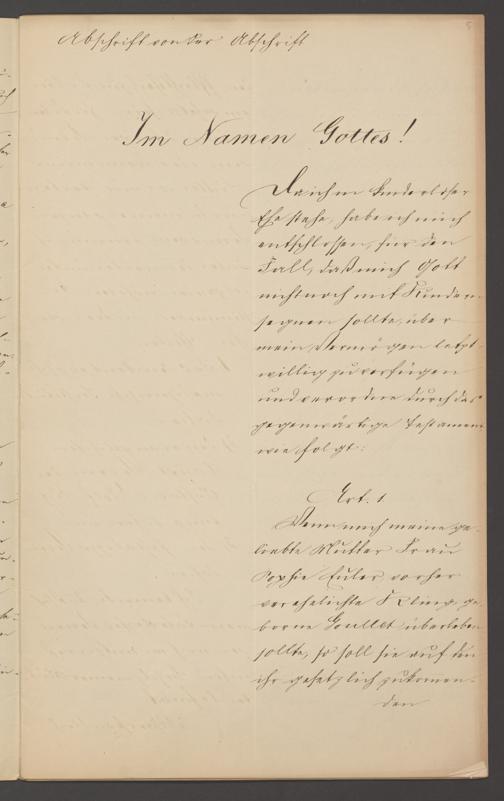 5
Abschrift von der Abschrift
Im Namen Gottes!
Da ich in kinderloser
Ehe stehe, habe ich mich
entschlossen, für den
Fall, daß mich Gott
nicht noch mit Kindern
segnen sollte, über
mein Vermögen letzt-
willig zu verfügen
und verordne durch das
gegenwärtige Testament
wie folgt:
Art. 1
Wenn mich meine ge-
liebte Mutter Frau
Sophie Euler vorher
verehelichte Kling, ge-
borne Goullet überleben
sollte, so soll sie auf den
ihr gesetzlich zukomen-
den